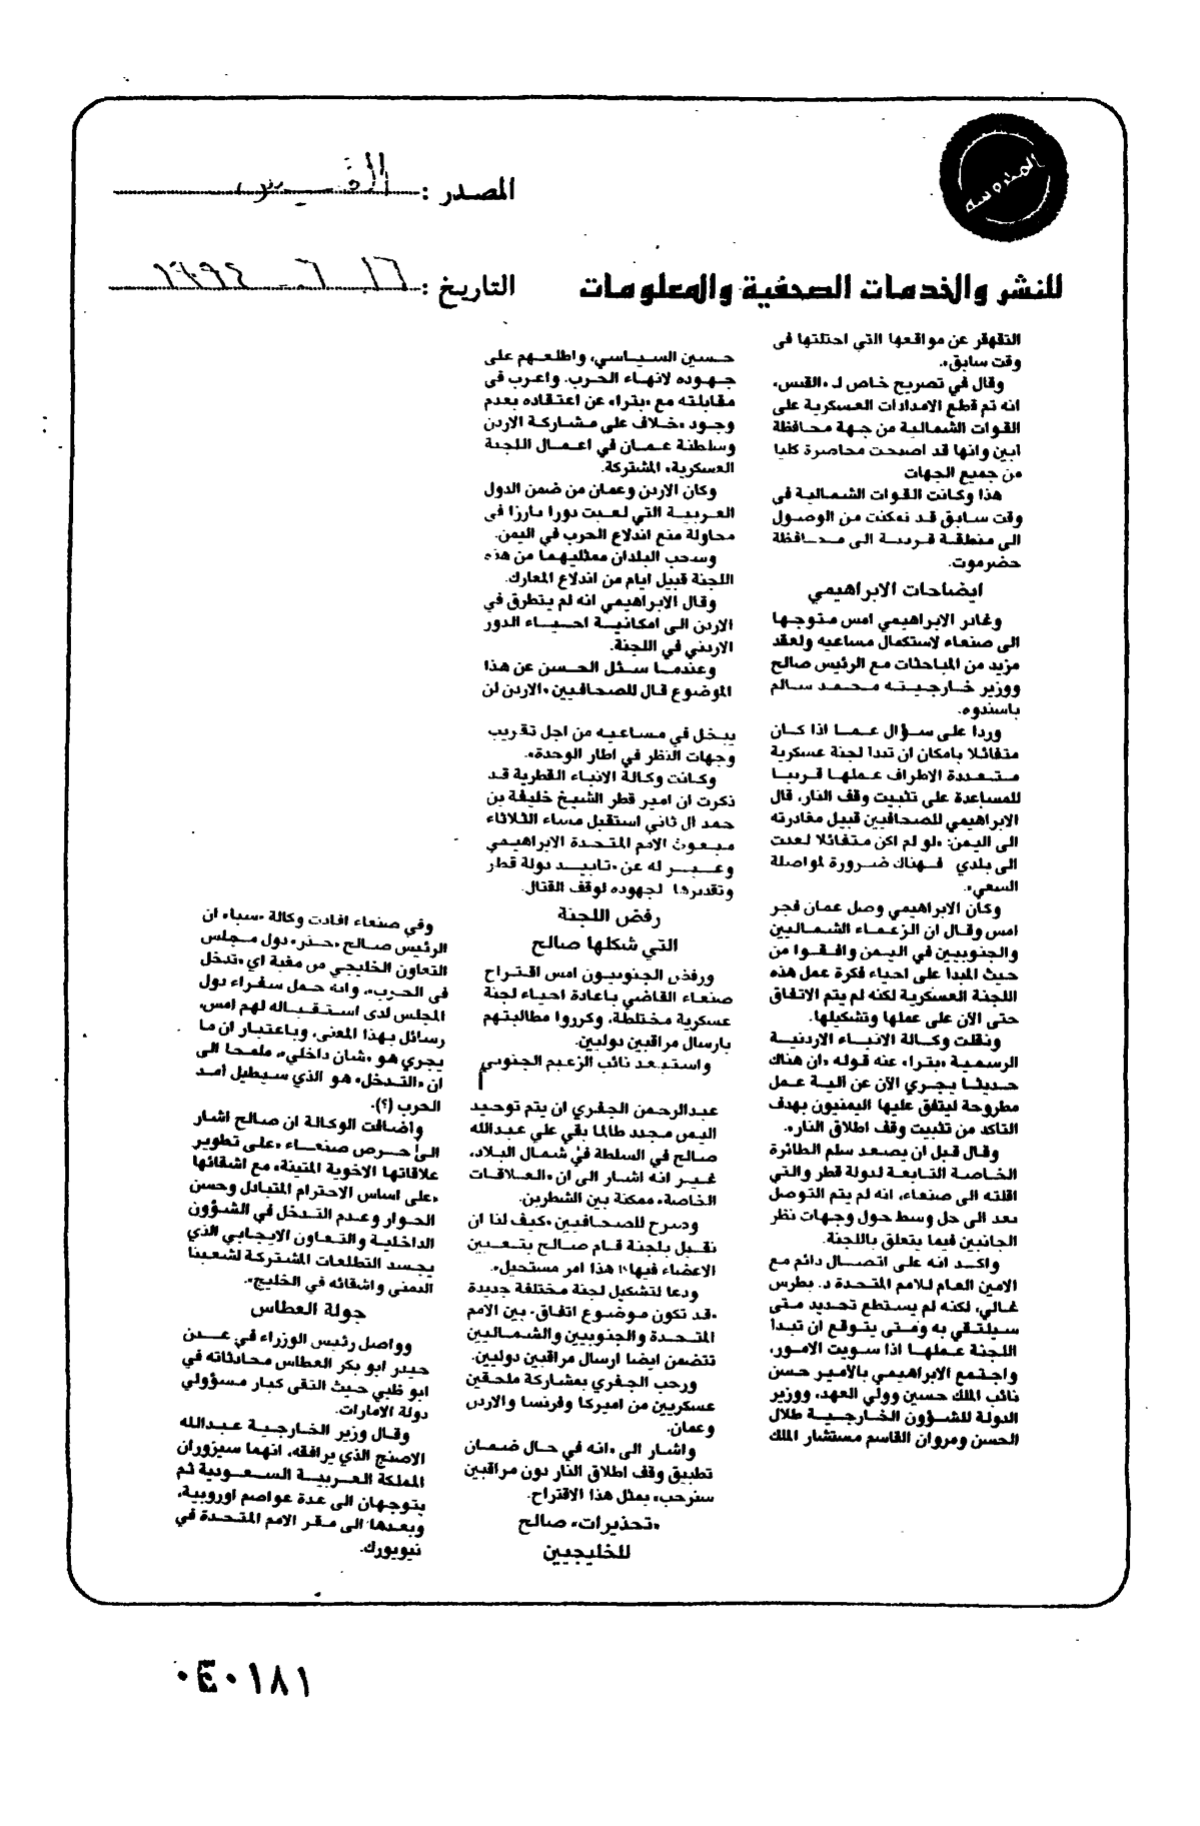 المدوسه
المصدر : القبس
للنشر والخدمات الصحفية والمعلومات
التاريخ : ١٦ - ٦ - ١٩٩٤
التقهقر عن مواقعها التي احتلتها في
وقت سابق».
وقال في تصريح خاص لـ «القبس»
انه تم قطع الامدادات العسكرية على
القوات الشمالية من جهة محافظة
ابين وانها قد اصبحت محاصرة كليا
من جميع الجهات
هذا وكانت القوات الشمالية في
وقت سابق قد تمكنت من الوصول
الى منطقة قريبة الى محافظة
حضرموت.
ايضاحات الابراهيمي
وغادر الابراهيمي امس متوجها
الى صنعاء لاستكمال مساعيه ولعقد
مزيد من المباحثات مع الرئيس صالح
ووزير خارجيته محمد سالم
باسندوه.
وردا على سؤال عما اذا كان
متفائلا بامكان ان تبدا لجنة عسكرية
متعددة الاطراف عملها قريبا
للمساعدة على تثبيت وقف النار، قال
الابراهيمي للصحافيين قبيل مغادرته
الى اليمن: «لو لم اكن متفائلا لعدت
الى بلدي فهناك ضرورة لمواصلة
السعي».
وكان الابراهيمي وصل عمان فجر
امس وقال ان الزعماء الشماليين
والجنوبيين في اليمن وافقوا من
حيث المبدا على احياء فكرة عمل هذه
اللجنة العسكرية لكنه لم يتم الاتفاق
حتى الآن على عملها وتشكيلها.
ونقلت وكالة الانباء الاردنية
الرسمية «بترا» عنه قوله «ان هناك
حديثا يجري الآن عن آلية عمل
مطروحة ليتفق عليها اليمنيون بهدف
التاكد من تثبيت وقف اطلاق النار».
وقال قبل ان يصعد سلم الطائرة
الخاصة التابعة لدولة قطر والتي
اقلته الى صنعاء، انه لم يتم التوصل
بعد الى حل وسط حول وجهات نظر
الجانبين فيما يتعلق باللجنة.
واكد انه على اتصال دائم مع
الامين العام للامم المتحدة د. بطرس
غالي، لكنه لم يستطع تحديد متى
سيلتقي به ومتى يتوقع ان تبدا
اللجنة عملها اذا سويت الامور،
واجتمع الابراهيمي بالامير حسن
نائب الملك حسين وولي العهد، ووزير
الدولة للشؤون الخارجية طلال
الحسن ومروان القاسم مستشار الملك
حسين السياسي، واطلعهم على
جهوده لانهاء الحرب. واعرب في
مقابلته مع «بترا» عن اعتقاده بعدم
وجود «خلاف على مشاركة الاردن
وسلطنة عمان في اعمال اللجنة
العسكرية» المشتركة.
وكان الاردن وعمان من ضمن الدول
العربية التي لعبت دورا بارزا في
محاولة منع اندلاع الحرب في اليمن.
وسحب البلدان ممثليهما من هذه
اللجنة قبيل ايام من اندلاع المعارك.
وقال الابراهيمي انه لم يتطرق في
الاردن الى امكانية احياء الدور
الاردني في اللجنة.
وعندما سئل الحسن عن هذا
الموضوع قال للصحافيين «الاردن لن
يبخل في مساعيه من اجل تقريب
وجهات النظر في اطار الوحدة».
وكانت وكالة الانباء القطرية قد
ذكرت ان امير قطر الشيخ خليفة بن
حمد آل ثاني استقبل مساء الثلاثاء
مبعوث الامم المتحدة الابراهيمي
وعبر له عن «تاييد دولة قطر
وتقديرها لجهوده لوقف القتال.
رفض اللجنة
التي شكلها صالح
ورفض الجنوبيون امس اقتراح
صنعاء القاضي باعادة احياء لجنة
عسكرية مختلطة، وكرروا مطالبتهم
بارسال مراقبين دوليين.
واستبعد نائب الزعيم الجنوبي
عبدالرحمن الجفري ان يتم توحيد
اليمن مجدد طالما بقي علي عبدالله
صالح في السلطة في شمال البلاد،
غير انه اشار الى ان «العلاقات
الخاصة» ممكنة بين الشطرين.
وصرح للصحافيين «كيف لنا ان
نقبل بلجنة قام صالح بتعيين
الاعضاء فيها؟ هذا امر مستحيل».
ودعا لتشكيل لجنة مختلفة جديدة
«قد تكون موضوع اتفاق» بين الامم
المتحدة والجنوبيين والشماليين
تتضمن ايضا ارسال مراقبين دوليين.
ورحب الجفري بمشاركة ملحقين
عسكريين من اميركا وفرنسا والاردن
وعمان.
واشار الى «انه في حال ضمان
تطبيق وقف اطلاق النار دون مراقبين
سنرحب» بمثل هذا الاقتراح.
«تحذيرات» صالح
للخليجيين
وفي صنعاء افادت وكالة «سبا» ان
الرئيس صالح «حذر» دول مجلس
التعاون الخليجي من مغبة اي «تدخل
في الحرب»، وانه حمل سفراء دول
المجلس لدى استقباله لهم امس،
رسائل بهذا المعنى، وباعتبار ان ما
يجري هو «شان داخلي»، ملمحا الى
ان «التدخل» هو الذي سيطيل امد
الحرب (؟).
واضافت الوكالة ان صالح اشار
الى حرص صنعاء «على تطوير
علاقاتها الاخوية المتينة» مع اشقائها
«على اساس الاحترام المتبادل وحسن
الحوار وعدم التدخل في الشؤون
الداخلية والتعاون الايجابي الذي
يجسد التطلعات المشتركة لشعبنا
اليمني واشقائه في الخليج».
جولة العطاس
وواصل رئيس الوزراء في عدن
حيدر ابو بكر العطاس محادثاته في
ابو ظبي حيث التقى كبار مسؤولي
دولة الامارات.
وقال وزير الخارجية عبدالله
الاصنج الذي يرافقه، انهما سيزوران
المملكة العربية السعودية ثم
يتوجهان الى عدة عواصم اوروبية،
وبعدها الى مقر الامم المتحدة في
نيويورك.
٠٤٠١٨١